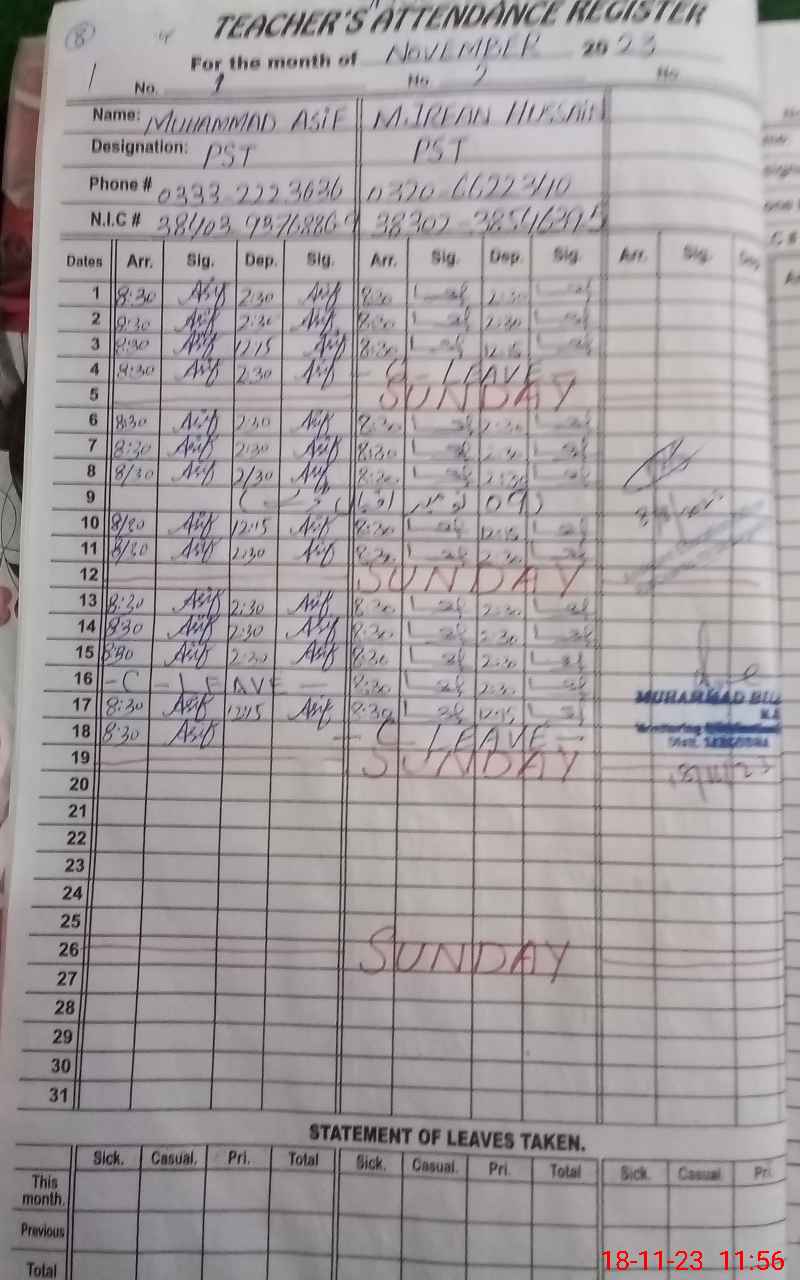 8
TEACHER'S ATTENDANCE REGISTER
For the month of NOVEMBER 2023
No. 1 No. 2 No.
Name: MUHAMMAD ASIF M.IRFAN HUSSAIN
Designation: PST PST
Phone # 0333 2223636 0320-6622340
N.I.C # 38403 38302-
Dates Arr. Sig. Dep. Sig. Arr. Sig. Dep. Sig. Arr. Sig.
1 8:30 Asif 2:30 Asif 8:30 2:30
2 8:30 Asif 2:30 Asif 8:30 2:30
3 8:30 Asif 12:15 Asif 8:30 12:15
4 8:30 Asif 2:30 Asif - C - LEAVE
5 SUNDAY
6 8:30 Asif 2:30 Asif 8:30 2:30
7 8:30 Asif 2:30 Asif 8:30 2:30
8 8/30 Asif 2/30 Asif 8:30 2:30
9
10 8/30 Asif 12:15 Asif 8:30 12:15
11 8/30 Asif 2:30 Asif 8:30 2:30
12 SUNDAY
13 8:30 Asif 2:30 Asif 8:30 2:30
14 8:30 Asif 2:30 Asif 8:30 2:30
15 8:30 Asif 2:30 Asif 8:30 2:30
16 - C - LEAVE - 8:30 2:30
MUHAMMAD
17 8:30 Asif 12:15 Asif 8:30 12:15
18 8:30 Asif - C - LEAVE -
19 SUNDAY
18/11/23
20
21
22
23
24
25
26 SUNDAY
27
28
29
30
31
STATEMENT OF LEAVES TAKEN.
Sick. Casual. Pri. Total Sick. Casual. Pri. Total Sick. Casual Pri.
This month.
Previous
Total
18-11-23 11:56